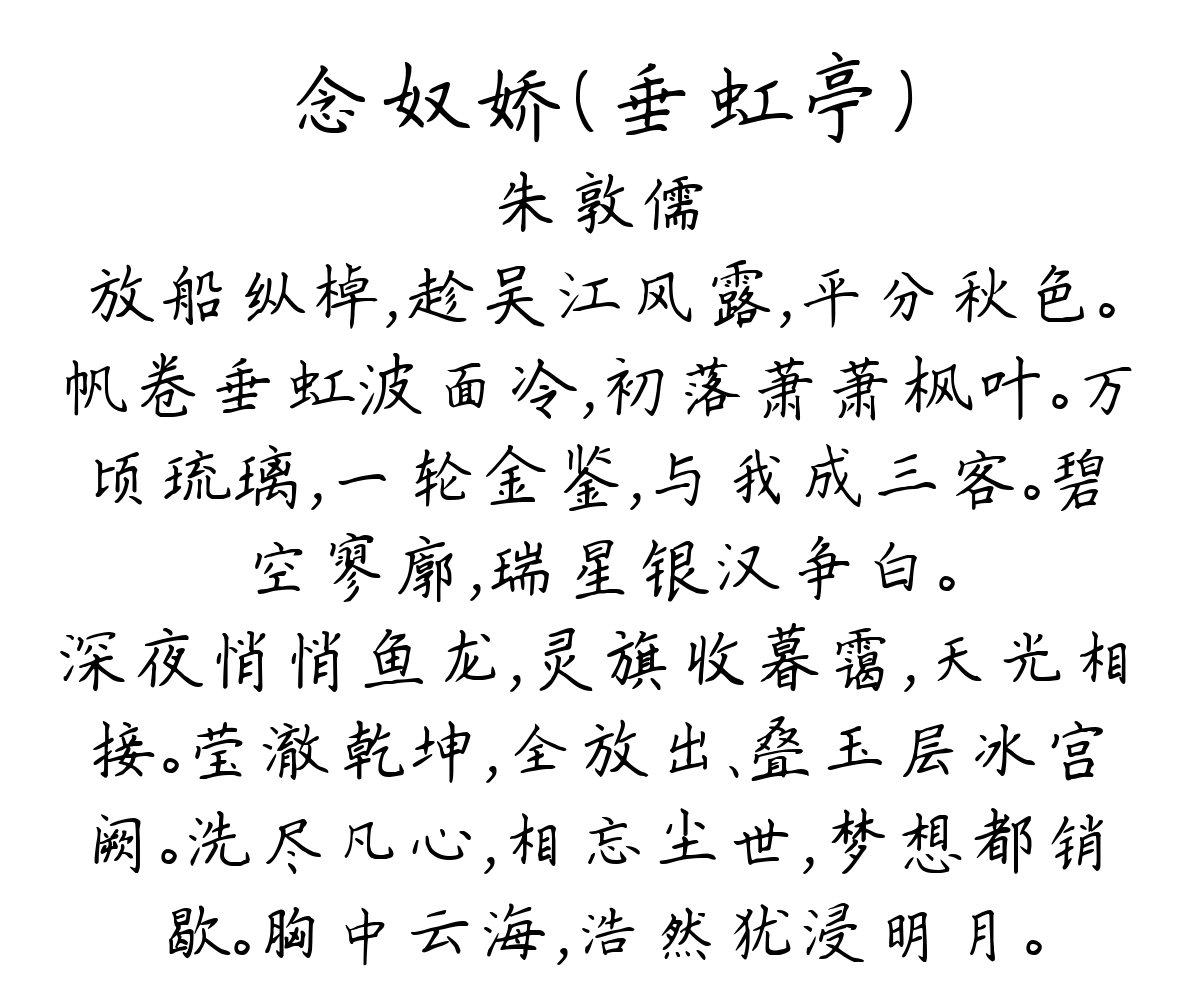 念奴娇(垂虹亭)
朱敦儒
放船纵棹,趁吴江风露,平分秋色。
帆卷垂虹波面冷,初落萧萧枫叶。万
顷琉璃,一轮金鉴,与我成三客。碧
空寥廓,瑞星银汉争白。
深夜悄悄鱼龙,灵旗收暮霭,天光相
接。莹澈乾坤,全放出、叠玉层冰宫
阙。洗尽凡心,相忘尘世,梦想都销
歇。胸中云海,浩然犹浸明月。